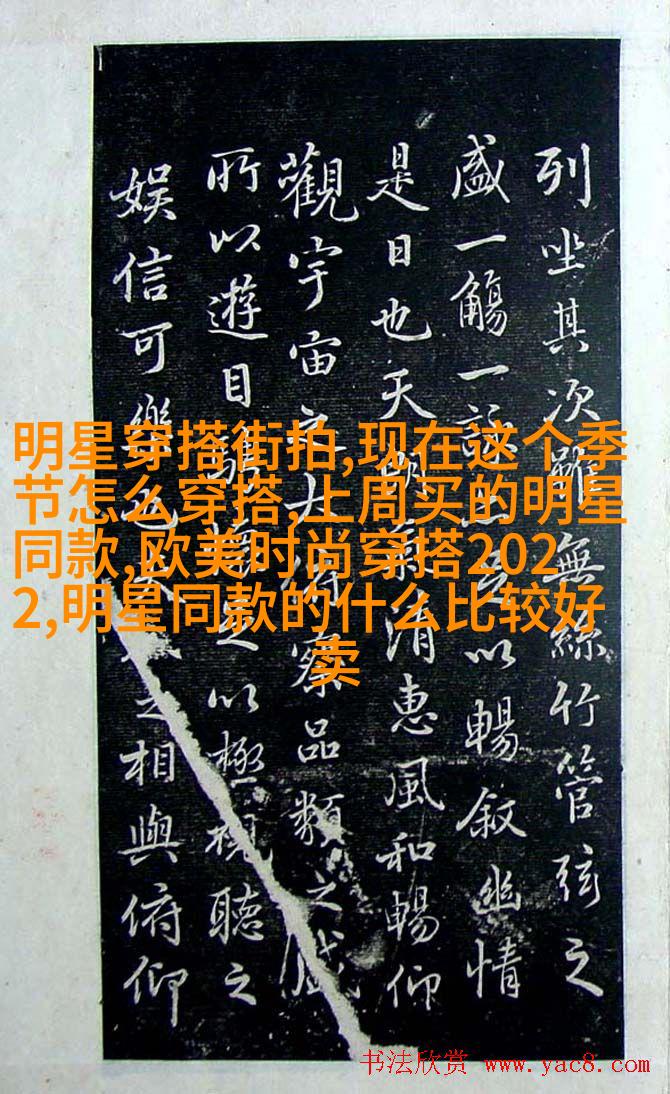 列坐其次雖無絲竹管弦之
盛一觴一詠足以暢叙幽情
是日也天朗氣清惠風和暢仰
觀宇宙之大俯察品類之盛
所以遊目騁懷足以極視聽之
娛信可樂也夫之相與俯仰
明星穿搭街拍,现在这个季
节怎么穿搭,上周买的明星
同款,欧美时尚穿搭202
2,明星同款的什么比较好
卖
书法欣赏 www.yac8.com